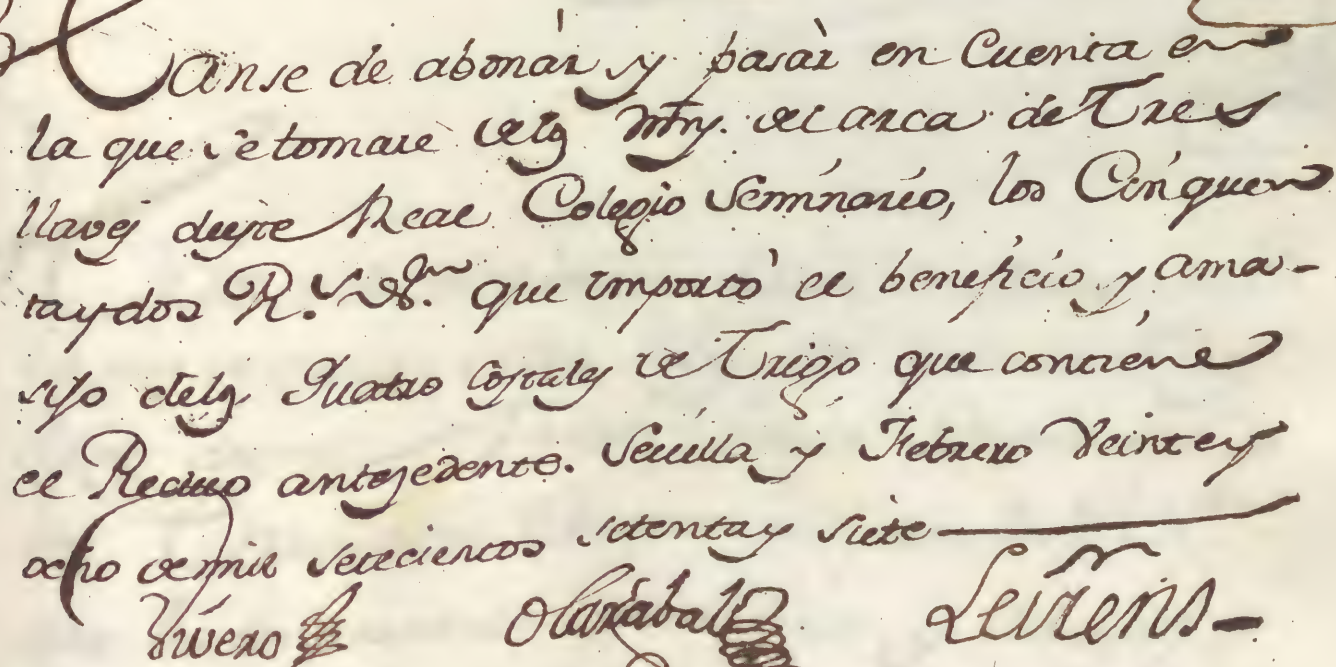 Hanse de abonár y pasár en Cuenta en
la que se tomare de los Mrs. del arca de Tres
llaves deeste Real Colegio Seminario, los Cinquen
ta y dos R.s v.n que importó el beneficio y ama-
sijo delos Quatro Costales de Trigo que contiene
el Recivo antezedente. Sevilla y Febrero Veinte y
ocho de mil setecientos setenta y siete
Vivero Olazabal Leirens